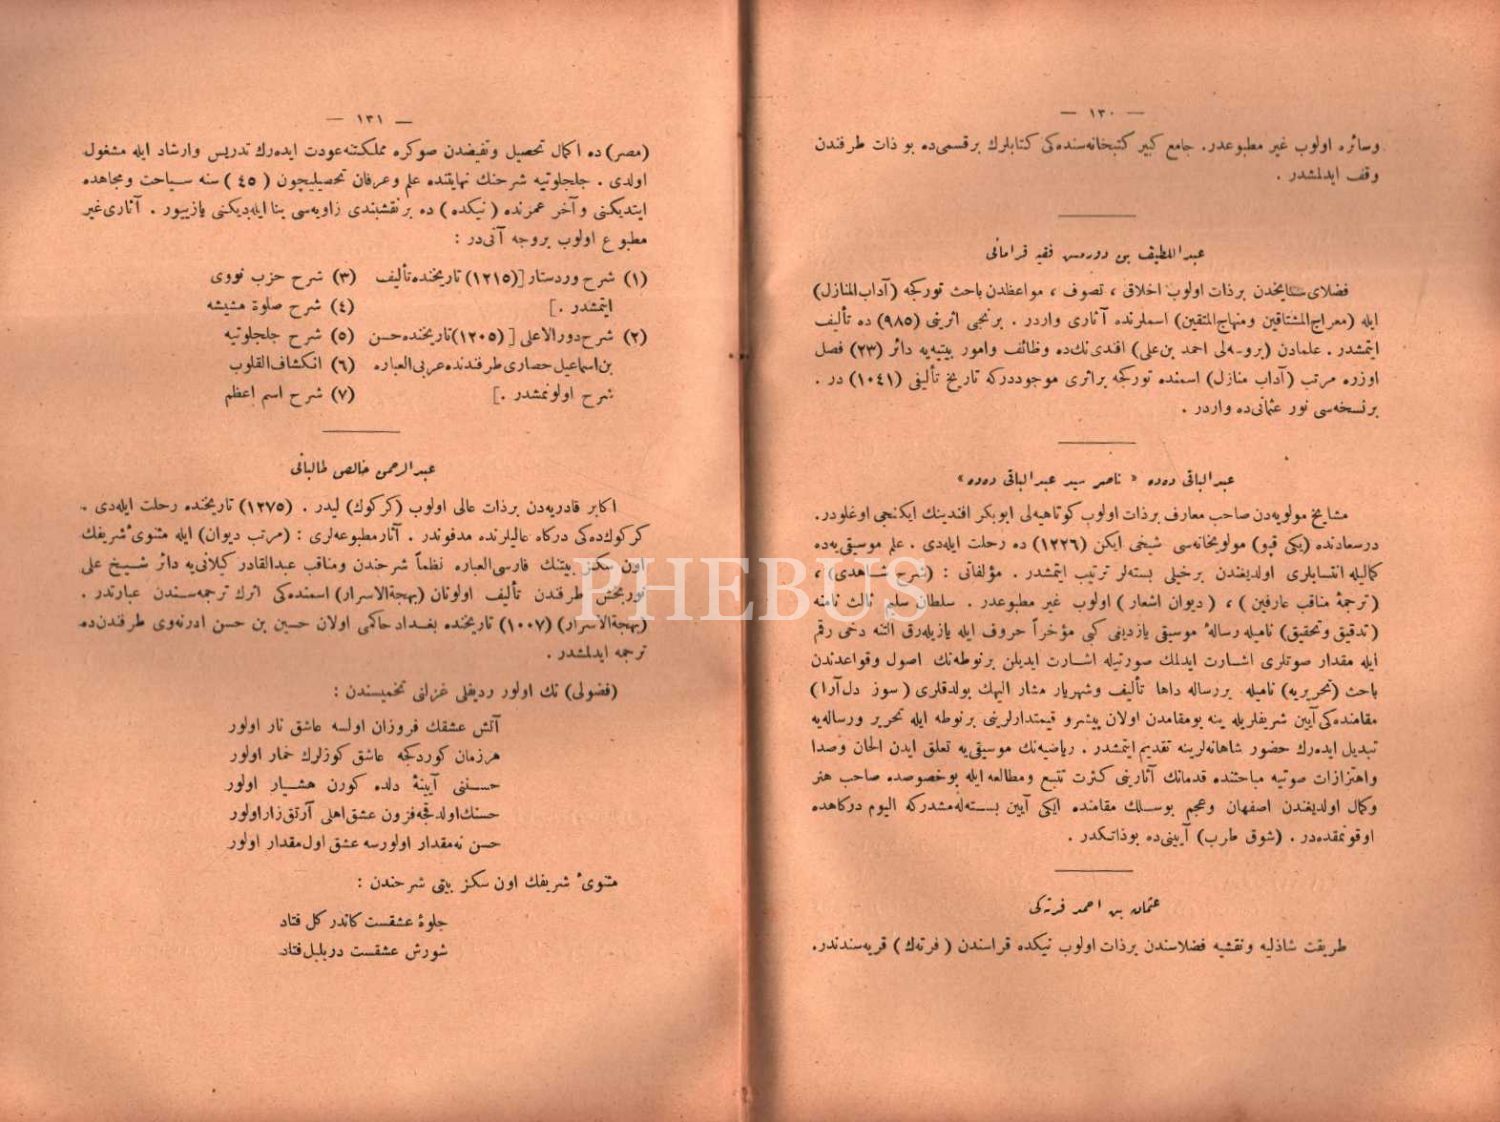 — ١٣٠ —
وسائره اولوب غير مطبوعدر. جامع كبير كتبخانه‌سنده‌كى كتابلرك برقسمى‌ده بو ذات طرفندن
وقف ايدلمشدر .
عبد اللطيف بن دورمس فقيه قرامانى
فضلاى مشايخدن برذات اولوب اخلاق ، تصوف ، مواعظدن باحث توركجه (آداب المنازل)
ايله (معراج المشتاقين ومنهاج المتقين) اسملرنده آثارى واردر . برنجى اثرينى (٩٨٥) ده تأليف
ايتمشدر . علمادن احمد بن على) افندى‌نك‌ده وظائف وامور بيتيه‌يه دائر (٢٣) فصل
اوزره مرتب (آداب منازل) اسمنده توركجه براثرى موجوددركه تاريخ تأليفى (١٠٤١) در .
برنسخه‌سى نور عثمانى‌ده واردر .
عبد الباقى دده « ناصر سيد عبد الباقى دده »
مشايخ مولويه‌دن صاحب معارف برذات اولوب كوتاهيه‌لى ابوبكر افندينك ايكنجى اوغلودر.
درسعادنده (يكى قپو) مولويخانه‌سى شيخى ايكن (١٢٣٦) ده رحلت ايله‌دى . علم موسيقى‌يه‌ده
كماليله انتسابلرى اولديغندن برخيلى بسته‌لر ترتيب ايتمشدر . مؤلفاتى : (شرح شاهدى) ،
(ترجمۀ مناقب عارفين) ، (ديوان اشعار) اولوب غير مطبوعدر . سلطان سليم ثالث نامنه
(تدقيق وتحقيق) ناميله رسالۀ موسيقى يازدينى كبى مؤخراً حروف ايله يازيله‌رق التنه دخى رقم
ايله مقدار صوتلرى اشارت ايدلمك صورتيله اشارت ايديلن برنوطه‌نك اصول وقواعدندن
باحث (تحريريه) ناميله بررساله داها تأليف وشهريار مشار اليهك بولدقلرى (سوز دل‌آرا)
مقامنده‌كى آيين شريفلريله ينه بومقامدن اولان پيشرو قيمتدارلرينى برنوطه ايله تحرير ورساله‌يه
تبديل ايده‌رك حضور شاهانه‌لرينه تقديم ايتمشدر . رياضيه‌نك موسيقى‌يه تعلق ايدن الحان وصدا
واهتزازات صوتيه مباحثنده قدمانك آثارينى كثرت تتبع ومطالعه ايله بوخصوصده صاحب هنر
وكمال اولديغندن اصفهان وعجم بوسلك مقامنده ايكى آيين بسته‌له‌مشدركه اليوم دركاهده
اوقونمقده‌در . (شوق طرب) آيينى‌ده بوذاتكدر .
عثمان بن احمد فرتكى
طريقت شاذليه ونقشيه فضلاسندن برذات اولوب نيكده قراسندن (فرتەك) قريه‌سندندر.
— ١٣١ —
(مصر) ده اكمال تحصيل وتفيضدن صوكره مملكتنه عودت ايده‌رك تدريس وارشاد ايله مشغول
اولدى . جلجلوتيه شرحنك نهايتنده علم وعرفان تحصيليچون (٤٥) سنه سياحت ومجاهده
ايتديكنى وآخر عمرنده (نيكده) ده برنقشبندى زاويه‌سى بنا ايله‌ديكنى يازييور . آثارى غير
مطبوع اولوب بروجه آتى‌در :
(١) شرح وردستار [(١٢١٥) تاريخنده تأليف
ايتمشدر .]
(٢) شرح دور الاعلى [(١٢٠٥) تاريخنده حسن
بن اسماعيل حصارى طرفندنده عربى العباره
شرح اولونمشدر .]
(٣) شرح حزب نووى
(٤) شرح صلوة مشيشه
(٥) شرح جلجلوتيه
(٦) انكشاف القلوب
(٧) شرح اسم اعظم
عبد الرحمن خالص طالبانى
اكابر قادريه‌دن برذات عالى اولوب (كركوك) ليدر . (١٢٧٥) تاريخنده رحلت ايله‌دى .
كركوك‌ده‌كى دركاه عاليلرنده مدفوندر . آثار مطبوعه‌لرى : (مرتب ديوان) ايله مثنوئ شريفك
اون سكز بيتنك فارسى العباره نظماً شرحندن ومناقب عبدالقادر كيلانى‌يه دائر شيخ على
نوربخش طرفندن تأليف اولونان (بهجة الاسرار) اسمنده‌كى اثرك ترجمه‌سندن عبارتدر .
(بهجة الاسرار) (١٠٠٧) تاريخنده بغداد حاكمى اولان حسين بن حسن ادرنه‌وى طرفندن‌ده
ترجمه ايدلمشدر .
(فضولى) نك اولور رديفلى غزلنى تخميسندن :
آتش عشقك فروزان اولسه عاشق نار اولور
هرزمان كوردكجه عاشق كوزلرك خمار اولور
حسنكى آيينۀ دلده كورن هشيار اولور
حسنك اولدقجه فزون عشق اهلى آرتق زار اولور
حسن نه‌مقدار اولورسه عشق اول مقدار اولور
مثنوئ شريفك اون سكز بيتى شرحندن :
جلوۀ عشقست كاندر كل فتاد
شورش عشقست دربلبل فتاد
PHEBUS